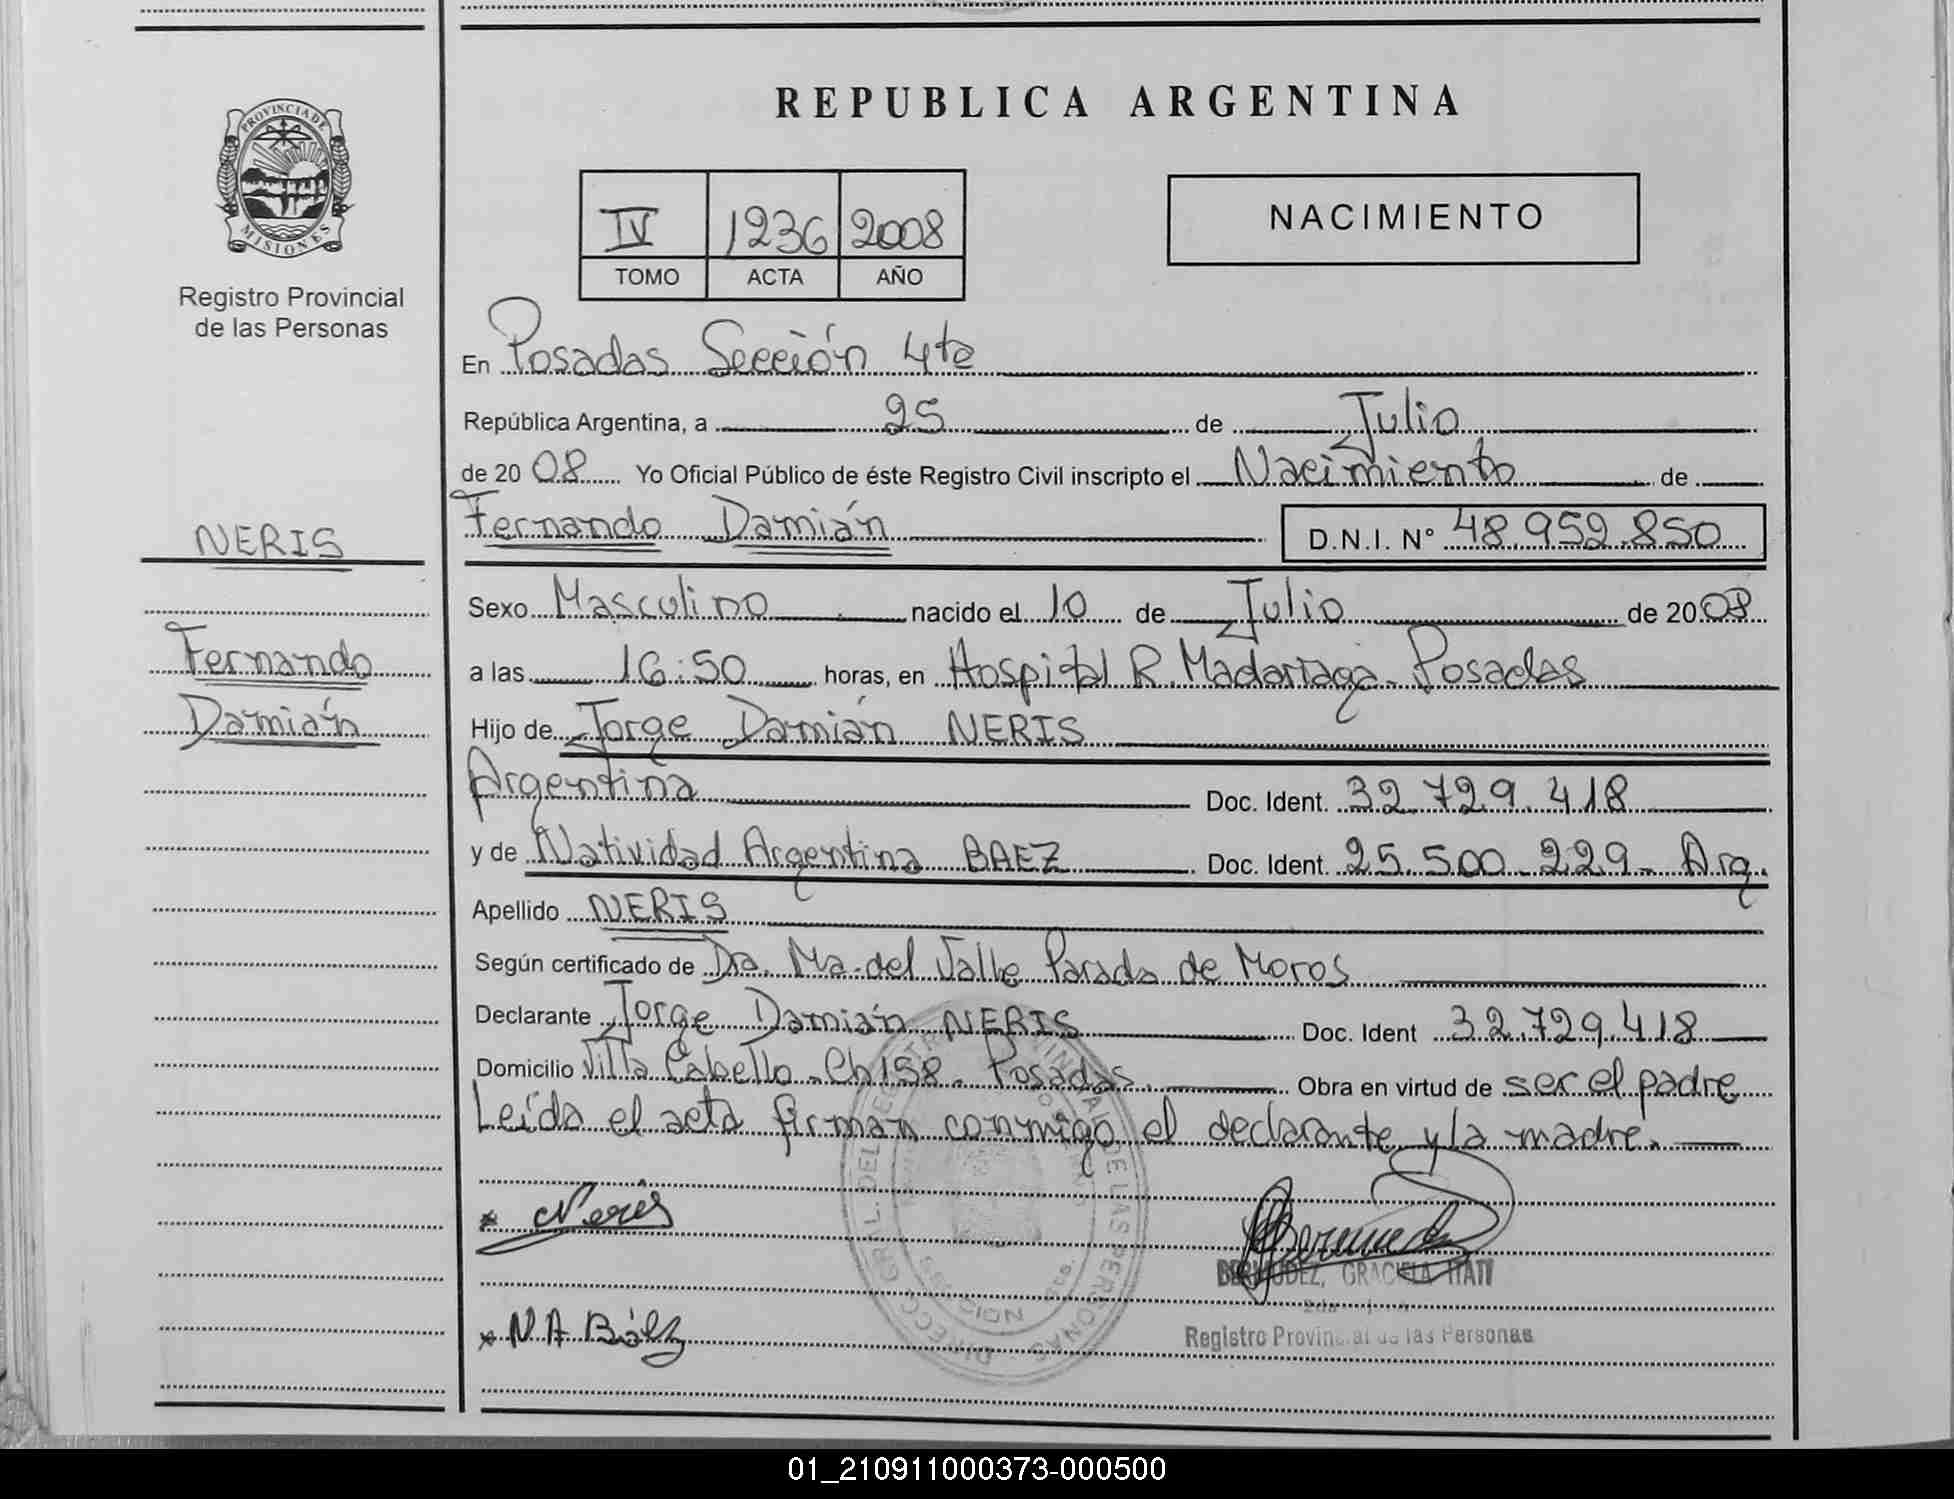 PROVINCIA DE
MISIONES
Registro Provincial
de las Personas
NERIS
Fernando
Damián
REPUBLICA ARGENTINA
IV 1236 2008
TOMO ACTA AÑO
NACIMIENTO
En Posadas Sección 4ta
República Argentina, a 25 de Julio
de 2008 Yo Oficial Público de éste Registro Civil inscripto el Nacimiento de
Fernando Damián D.N.I. N° 48.952.850
Sexo Masculino nacido el 10 de Julio de 2008
a las 16:50 horas, en Hospital R. Madariaga - Posadas
Hijo de Jorge Damián NERIS
Argentina Doc. Ident. 32.729.418
y de Natividad Argentina BAEZ Doc. Ident. 25.500.229 - Arg.
Apellido NERIS
Según certificado de Dra. Ma. del Valle Parada de Moros
Declarante Jorge Damián NERIS Doc. Ident 32.729.418
Domicilio Villa Cabello - Ch 158 - Posadas Obra en virtud de ser el padre
Leída el acta firman conmigo el declarante y la madre.
Neris
BERMUDEZ, GRACIELA ITATI
N A Báez
Registro Provincial de las Personas
01_210911000373-000500